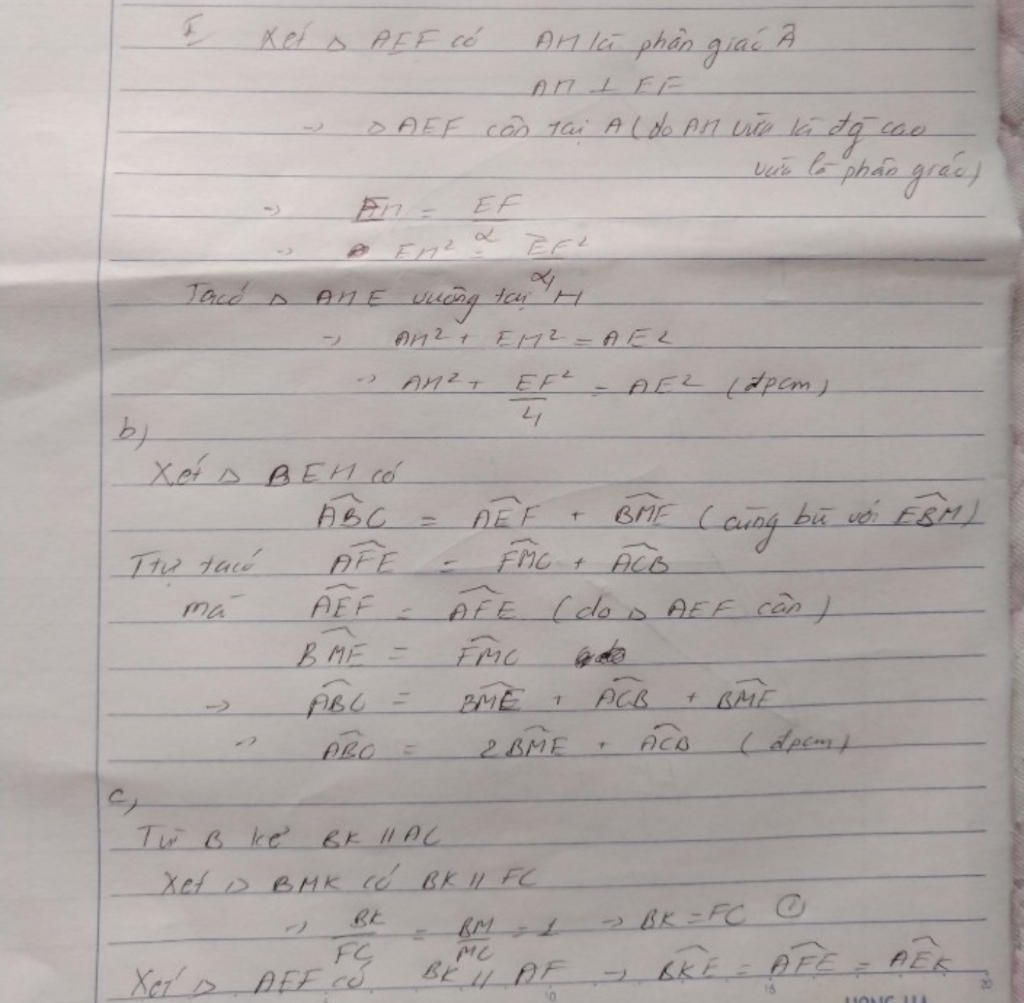 Xét △ AEF có AH là phân giác Â
AH ⊥ EF
→ △ AEF cân tại A (do AH vừa là đg cao
vừa là phân giác)
→ EH = EF/2
→ EH² = EF²/4
Ta có △ AHE vuông tại H
→ AH² + EH² = AE²
→ AH² + EF²/4 = AE² (đpcm)
b)
Xét △ BEM có
ABC = AEF + BME (cùng bù với EBM)
Ttự ta có AFE = FMC + ACB
mà AEF = AFE (do △ AEF cân)
BME = FMC
→ ABC = BME + ACB + BME
→ ABC = 2BME + ACB (đpcm)
c,
Từ B kẻ BK // AC
Xét △ BMK có BK // FC
→ BK/FC = BM/MC = 1 → BK = FC ①
Xét △ AEF có BK // AF → BKE = AFE = AEK
10 15 20